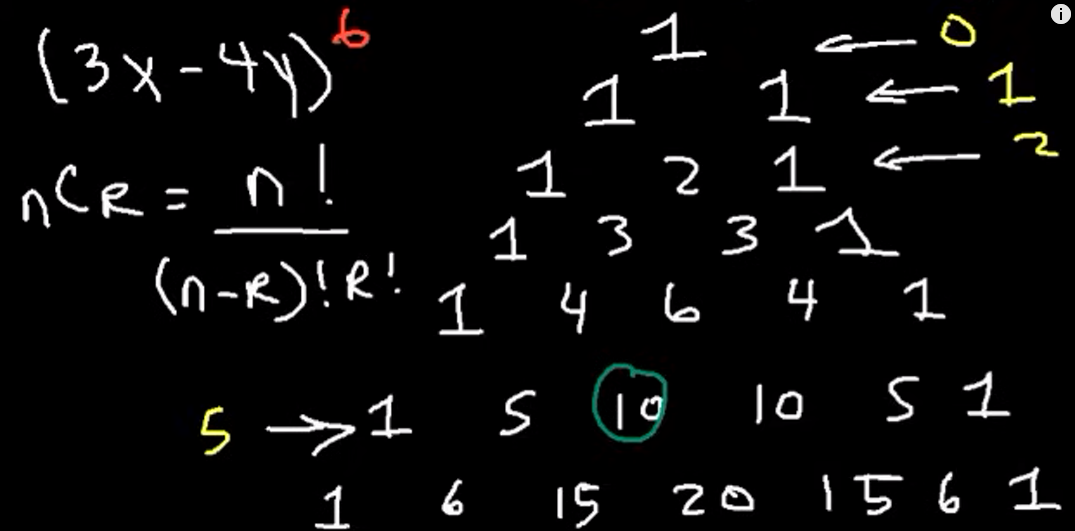 (3x-4y)^6
nCR = n! / (n-R)!R!
1 ← 0
1 1 ← 1
1 2 1 ← 2
1 3 3 1
1 4 6 4 1
5 → 1 5 10 10 5 1
1 6 15 20 15 6 1